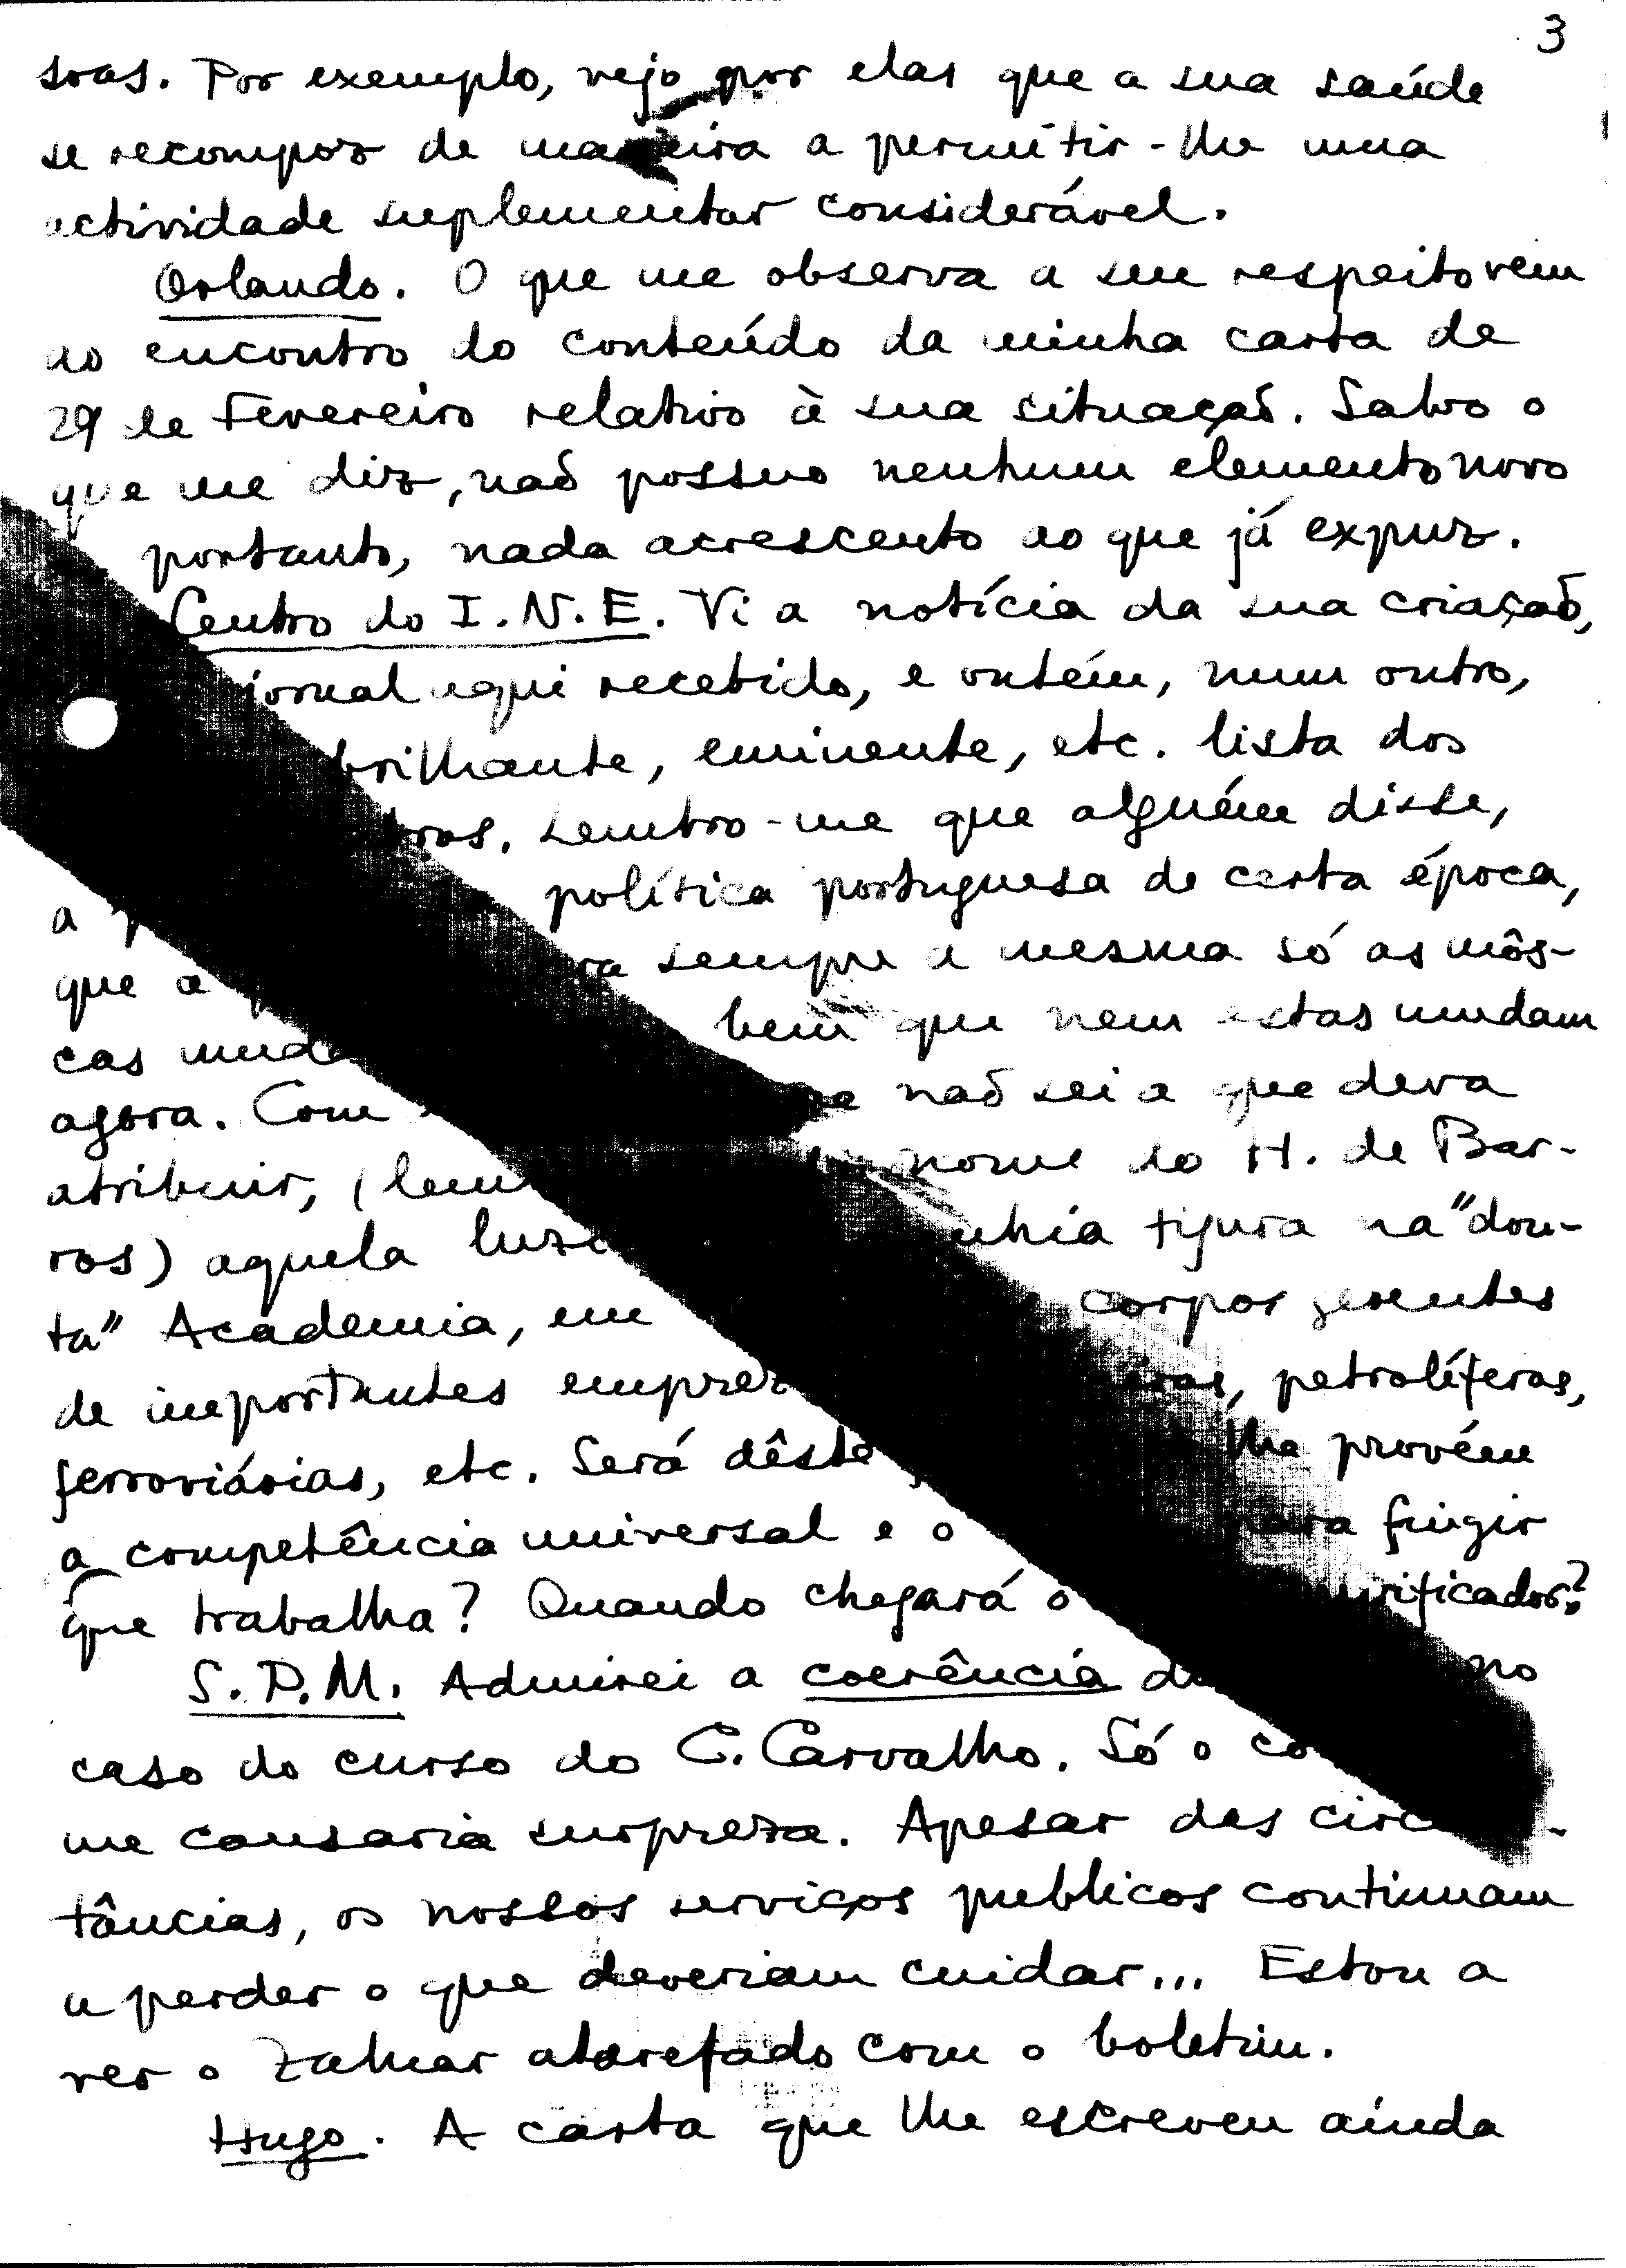 3
soas. Por exemplo, vejo por elas que a sua saúde
se recompoz de maneira a permitir-lhe uma
actividade suplementar considerável.
Orlando. O que me observa a seu respeito vem
ao encontro do conteúdo da minha carta de
29 de Fevereiro relativo à sua situação. Salvo o
que me diz, não possuo nenhum elemento novo
portanto, nada acrescento ao que já expuz.
Centro do I.N.E. Vi a notícia da sua criação,
jornal aqui recebido, e ontém, num outro,
brilhante, eminente, etc. lista dos
Lembro-me que alguém disse,
a política portuguesa de certa época,
que a sempre a mesma só as môs-
cas bem que nem estas mudam
agora. Com não sei a que deva
atribuir, nome do H. de Bar-
ros) aquela figura na "dou-
ta" Academia, em corpos gerentes
de importantes petrolíferas,
ferroviárias, etc. Será dêste lhe provém
a competência universal e o para fingir
que trabalha? Quando chegará o
S.P.M. Admirei a coerência no
caso do curso do C. Carvalho. Só o
me causaria surpreza. Apesar das
tâncias, os nossos serviços publicos continuam
a perder o que deveriam cuidar... Estou a
ver o Zaluar atarefado com o boletim.
Hugo. A carta que lhe escreveu ainda